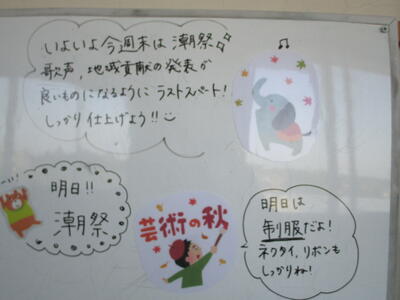 いよいよ今週末は潮祭
歌声、地域貢献の発表が
良いものになるように ラストスパート!
しっかり仕上げよう!!
明日!!
潮祭
芸術の秋
明日は
制服だよ!
ネクタイ、リボンも
しっかりね!